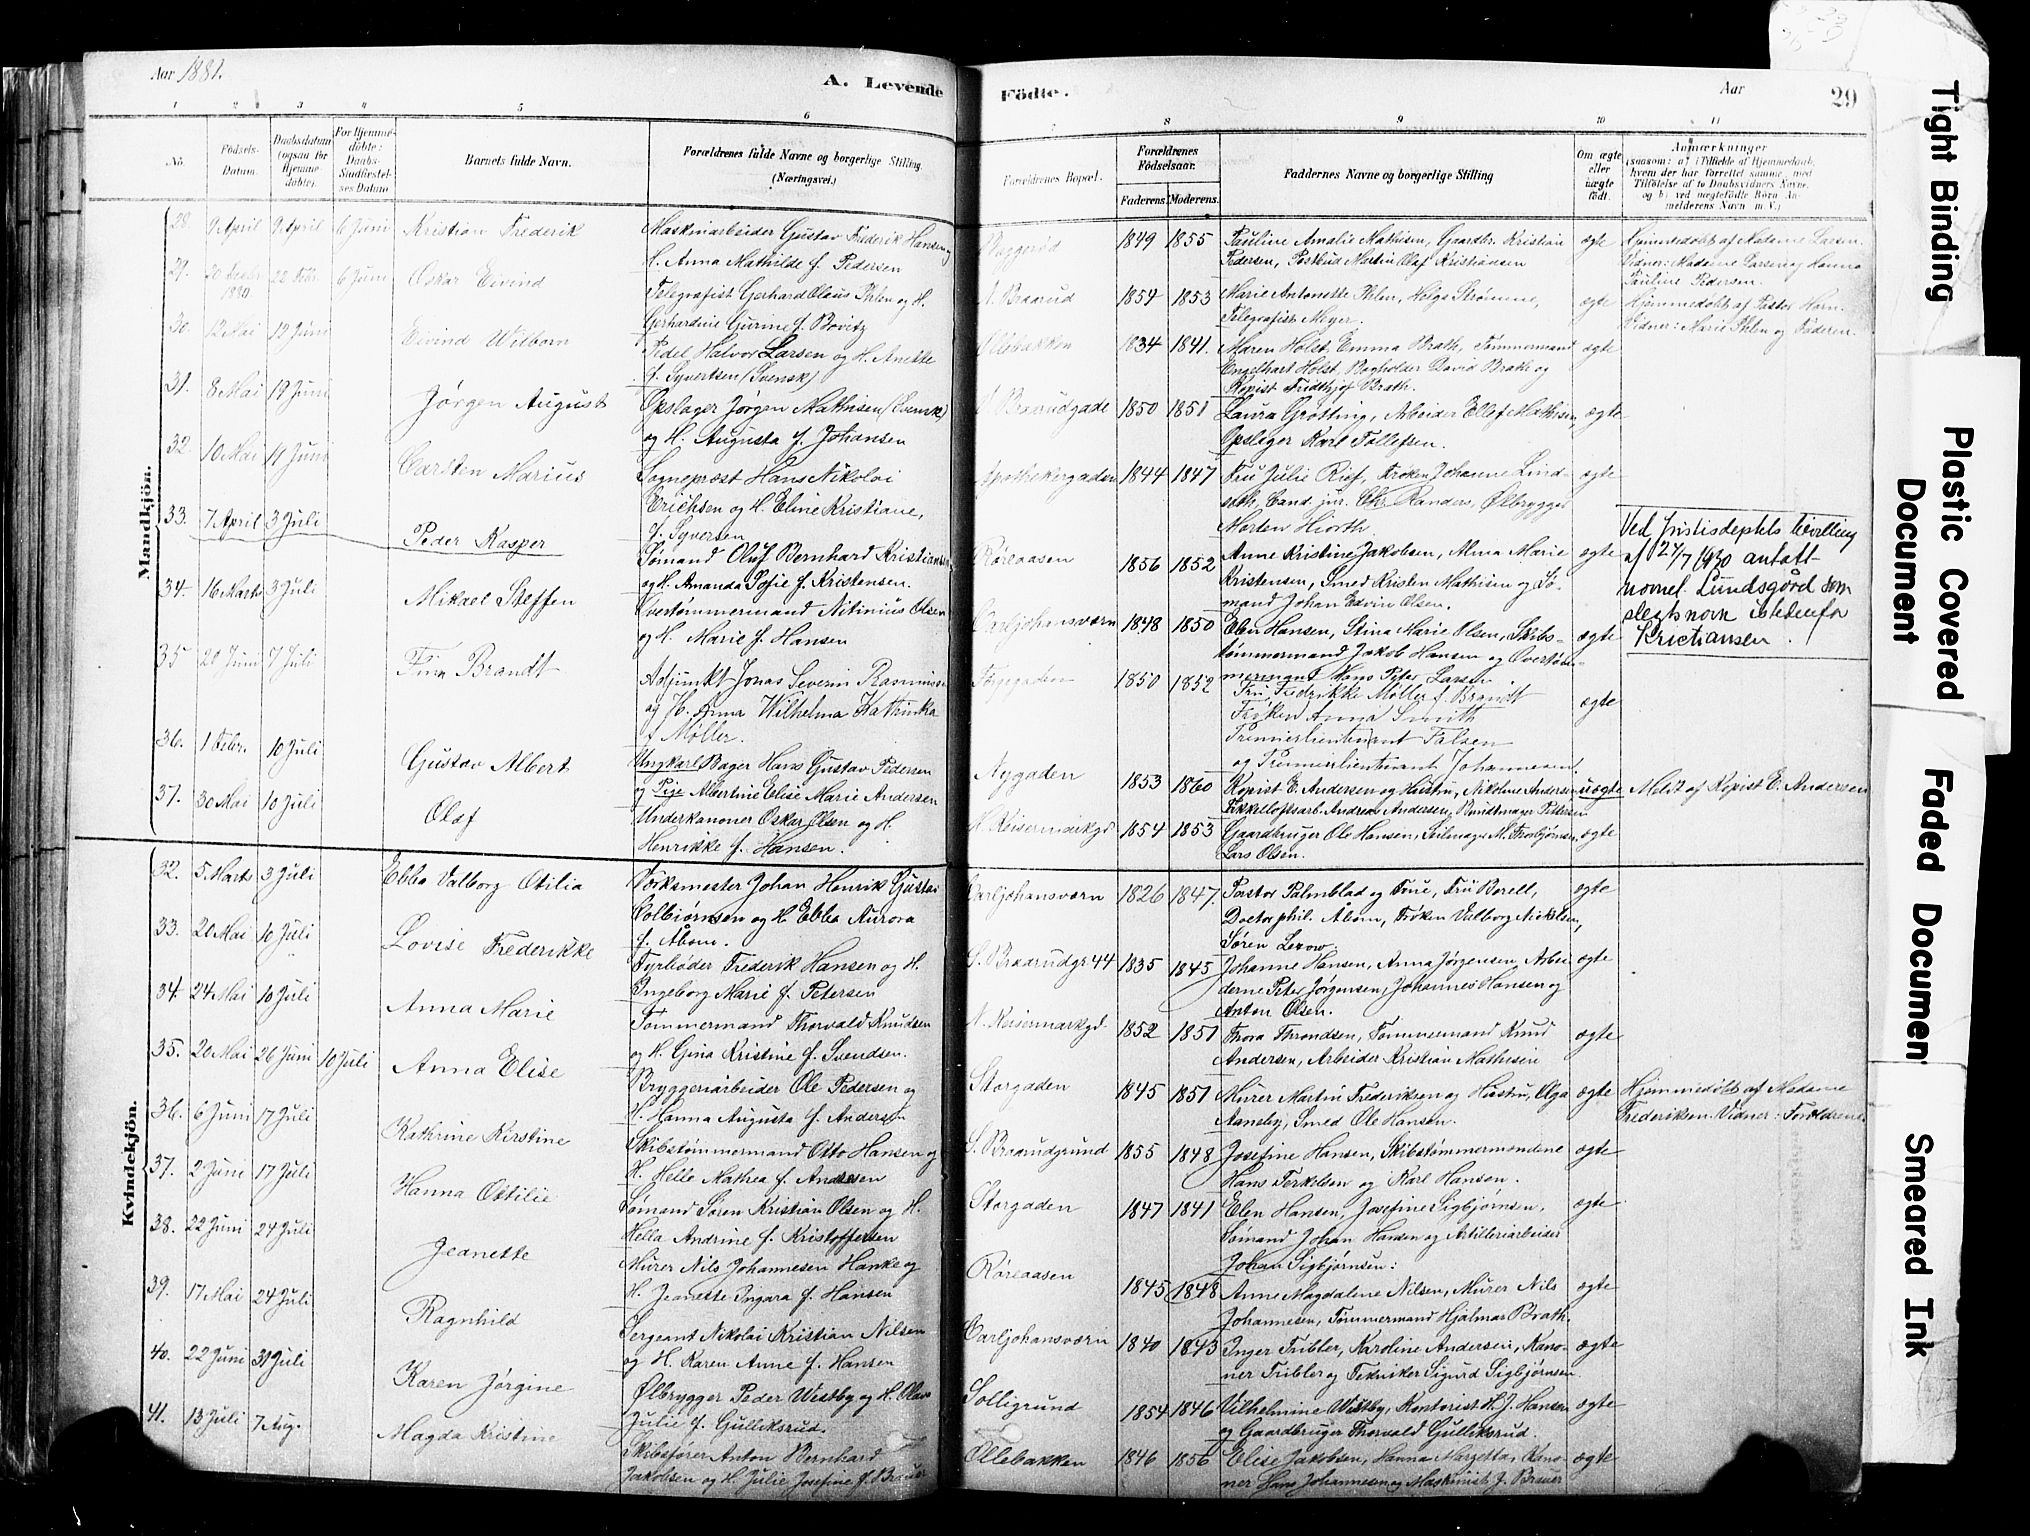 Aar 1881.
A. Levende
Födte.
Aar
29
1 2 3 4 5 6
7 8 9 10 11
No.
Födsels-Datum.
Daabsdatum (ogsaa for Hjemmedöbte).
For Hjemmedöbte: Daabs-Stadfæstelses Datum
Barnets fulde Navn.
Forældrenes fulde Navne og borgerlige Stilling. (Næringsvei.)
Forældrenes Bopæl.
Forældrenes Födselsaar.
Faderens. Moderens.
Faddernes Navne og borgerlige Stilling
Om ægte eller uægte födt.
Anmærkninger
Mandkjön.
28. 9 April 9 April 6 Juni Kristian Frederik
Maskinarbeider Gustav Frederik Hansen og
H. Anna Mathilde f. Pedersen
1849 1855 Pauline Amalie Mathisen, Gaardbr. Kristian
Pedersen, Postbud Martin Olaf Kristiansen
ægte
Hjemmedöbt af Madame Larsen.
Vidner: Madame Larsen og Hanna
Pauline Pedersen.
29. 1880 6 Juni Oskar Eivind
Telegrafist Gerhard Olaus Ihlen og H.
Gerhardine Gurine f. Bovitz
N. Braarud 1854 1853 Marie Antonette Ihlen, Helga Strømme,
Telegrafist Meyer.
ægte
Hjemmedöbt af Pastor Horn.
Vidner: Marie Ihlen og Faderen.
30. 12 Mai 19 Juni Eivind Wilborn
Pedel Halvor Larsen og H. Anette
f. Syvertsen (Svensk)
Ollebakken 1834 1841. Maren Holst, Emma Brath, Tømmermand
Engelhart Holst, Bogholder David Brath og
Kopist Fridthjof Brath.
ægte
31. 8 Mai 19 Juni Jørgen August
Opslager Jørgen Mathisen (Svensk)
og H. Augusta f. Johansen
N. Braarudgade 1850 1851 Laura Grøtting, Arbeider Ellef Mathisen,
Opslager Karl Tollefsen.
ægte
32. 10 Mai 19 Juni Carsten Marius
Sognepræst Hans Nikolai
Erichsen og H. Eline Kristiane,
f. Syversen
Apothekergaden 1844 1847 Fru Julie Rief, Frøken Johanne Lind-
seth, Cand. jur. Chr. Randers, Ølbrygger
Morten Hiorth
ægte
33. 7 April 3 Juli Peder Kasper
Sømand Oluf Bernhard Kristiansen
og H. Amanda Sofie f. Kristensen.
Røreaasen 1856 1852 Anne Kristine Jakobsen, Alma Marie
Kristensen, Smed Kristen Mathisen og Sø-
mand Johan Edvin Olsen.
ægte
Ved Justisdeptets bevilling
af 24/7 1930 antatt
navnet Lundsgård som
slegtsnavn istedenfor
Kristiansen.
34. 16 Marts 3 Juli Mikael Steffen
Overtømmermand Nitinius Olsen
og H. Marie f. Hansen
Carljohansværn 1848 1850 Elen Hansen, Stina Marie Olsen, Skibs-
tømmermand Jakob Hansen og Overtøm-
mermand Hans Peter Larsen
ægte
35 20 Juni 7 Juli Finn Brandt
Adjunkt Jonas Severin Rasmussen
og H. Anna Wilhelma Kathinka
f Møller.
1850 1852 Fru Fredrikke Møller f. Brandt
Frøken Anna Smith
Premierlieutenant Falsen
og Premierlieutenant Johannesen.
ægte
36. 1 Febr. 10 Juli Gustav Albert
Ungkarl Bager Hans Gustav Pedersen
og Pige Albertine Elise Marie Andersen
Nygaden 1853 1860 Kopist E. Andersen og Hustru, Nikoline Andersen,
Andreas Andersen, Bundtmager Petersen
uægte Meldt af Kopist E. Andersen
37. 30 Mai 10 Juli Olaf
Underkanoner Oskar Olsen og H.
Henrikke f. Hansen.
N. Keisermarkgd 1854 1853 Gaardbruger Ole Hansen, Seilmager M. Thorbjørnsen,
Lars Olsen.
ægte
Kvindekjön.
32. 5 Marts 3 Juli Ebba Valborg Otilia
Værksmester Johan Henrik Gustav
Colbiørnsen og H. Ebba Aurora
f. Åbom.
Carljohansværn 1826 1847. Pastor Palmblad og Frue, Fru Borell,
Doctor phil. Åbom, Frøken Valborg Nicklsen,
Søren Lexow.
ægte
33. 20 Mai 10 Juli Lovise Frederikke
Fyrbøder Frederik Hansen og H.
Ingeborg Marie f. Petersen
S. Braarudgr 44 1835 1845 Johanne Hansen, Anna Jørgensen Arbei-
derne Peter Jørgensen, Johannes Hansen og
Anton Olsen.
ægte
34. 24 Mai 10 Juli Anna Marie
Tømmermand Thorvald Knudsen
og H. Gina Kristine f. Svendsen.
N. Keisermarkgd. 1852 1851 Thora Throndsen, Tømmermand Knud
Andersen, Arbeider Kristian Mathisen
ægte
35. 20 Mai 26 Juni 10 Juli Anna Elise
Bryggeriarbeider Ole Pedersen og
H. Hanna Augusta f. Andersen
Storgaden 1845 1851 Murer Martin Frederiksen og Hustru, Olga
Aansby, Smed Ole Hansen.
ægte
Hjemmedöbt af Madame
Frederiksen. Vidner: Forældrene.
36. 6 Juni 17 Juli Kathrine Kirstine
Skibstømmermand Otto Hansen og
H. Helle Mathea f. Andersen
S. Braarudgrund 1855 1848 Josefine Hansen, Skibstømmermændene
Hans Terkelsen og Karl Hansen.
ægte
37. 2 Juni 17 Juli Hanna Ottilie
Sømand Søren Kristian Olsen og H.
Hella Andrine f. Kristoffersen
Storgaden 1847 1841 Elen Hansen, Josefine Sigbjørnsen,
Sømand Johan Hansen og Artilleriarbeider
Johan Sigbjørnsen.
ægte
38. 22 Juni 24 Juli Jeanette
Murer Nils Johannesen Hanke og
H. Jeanette Ingara f. Hansen
Røreaasen 1845 1848 Anne Magdalene Nilsen, Murer Nils
Johannesen, Tømmermand Hjalmar Brath.
ægte
39. 17 Mai 24 Juli Ragnhild
Sergeant Nikolai Kristian Nilsen
og H. Karen Anne f. Hansen
Carljohansværn 1840 1843 Inger Tribler, Karoline Andersen, Kano-
ner Tribler og Tekniker Sigurd Sigbjørnsen.
ægte
40. 22 Juni 31 Juli Karen Jørgine
Ølbrygger Peder Westby og H. Olava
Julie f. Gulliksrud.
Solligrund 1854 1846 Vilhelmine Westby, Kontorist H. J. Hansen
og Gaardbruger Thorvald Gulliksrud.
ægte
41. 13 Juli 7 Aug. Magda Kristine
Skibsfører Anton Bernhard
Jakobsen og H. Julie Josefine f. Brauer
Ollebakken 1846 1856 Elise Jakobsen, Hanna Margetta, Kano-
ner Hans Johannesen og Maskinist J. Brauer
ægte
Tight Binding
Plastic Covered Document
Faded Documen
Smeared Ink